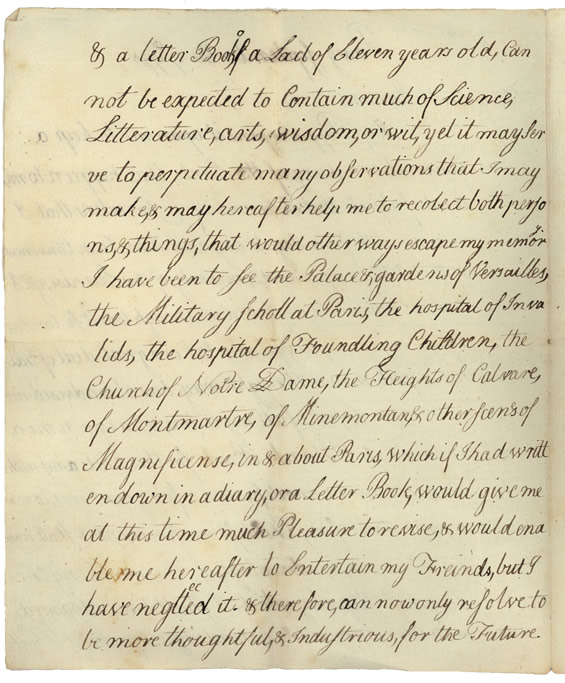 & a letter Book of a Lad of Eleven years old, Can
not be expected to Contain much of Science,
Litterature, arts, wisdom, or wit, yet it may Ser
ve to perpetuate many observations that I may
make, & may hereafter help me to recolect both perso
ns, & things, that would other ways escape my memory
I have been to see the Palace & gardens of Versailles,
the Military scholl at Paris, the hospital of Inva
lids, the hospital of Foundling Children, the
Church of Notre Dame, the Heights of Calvare,
of Montmartre, of Minemontan, & other scens of
Magnificense, in & about Paris, which if I had writt
en down in a diary, or a Letter Book, would give me
at this time much Pleasure to revise, & would ena
ble me hereafter to Entertain my Freinds, but I
have neglected it. & therefore, can now only resolve to
be more thoughtful, & Industrious, for the Future.